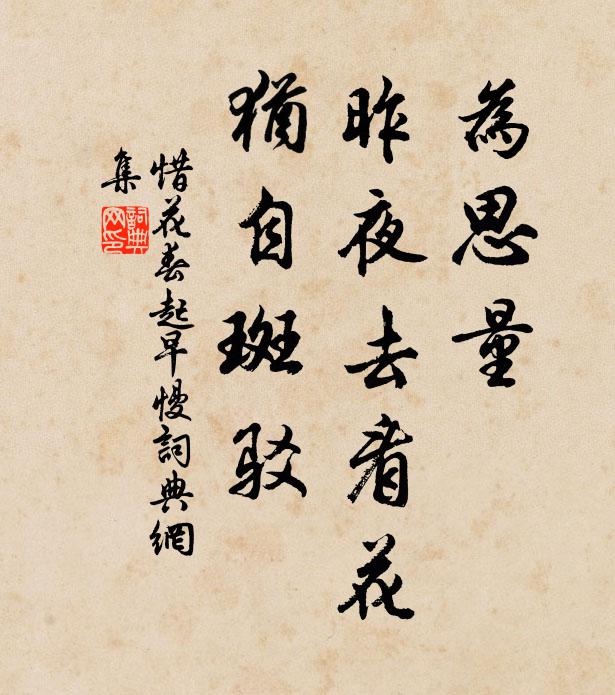 為思量
昨夜去看花
猶自斑駁
惜花春起早慢詞典網
集
詞典
网印